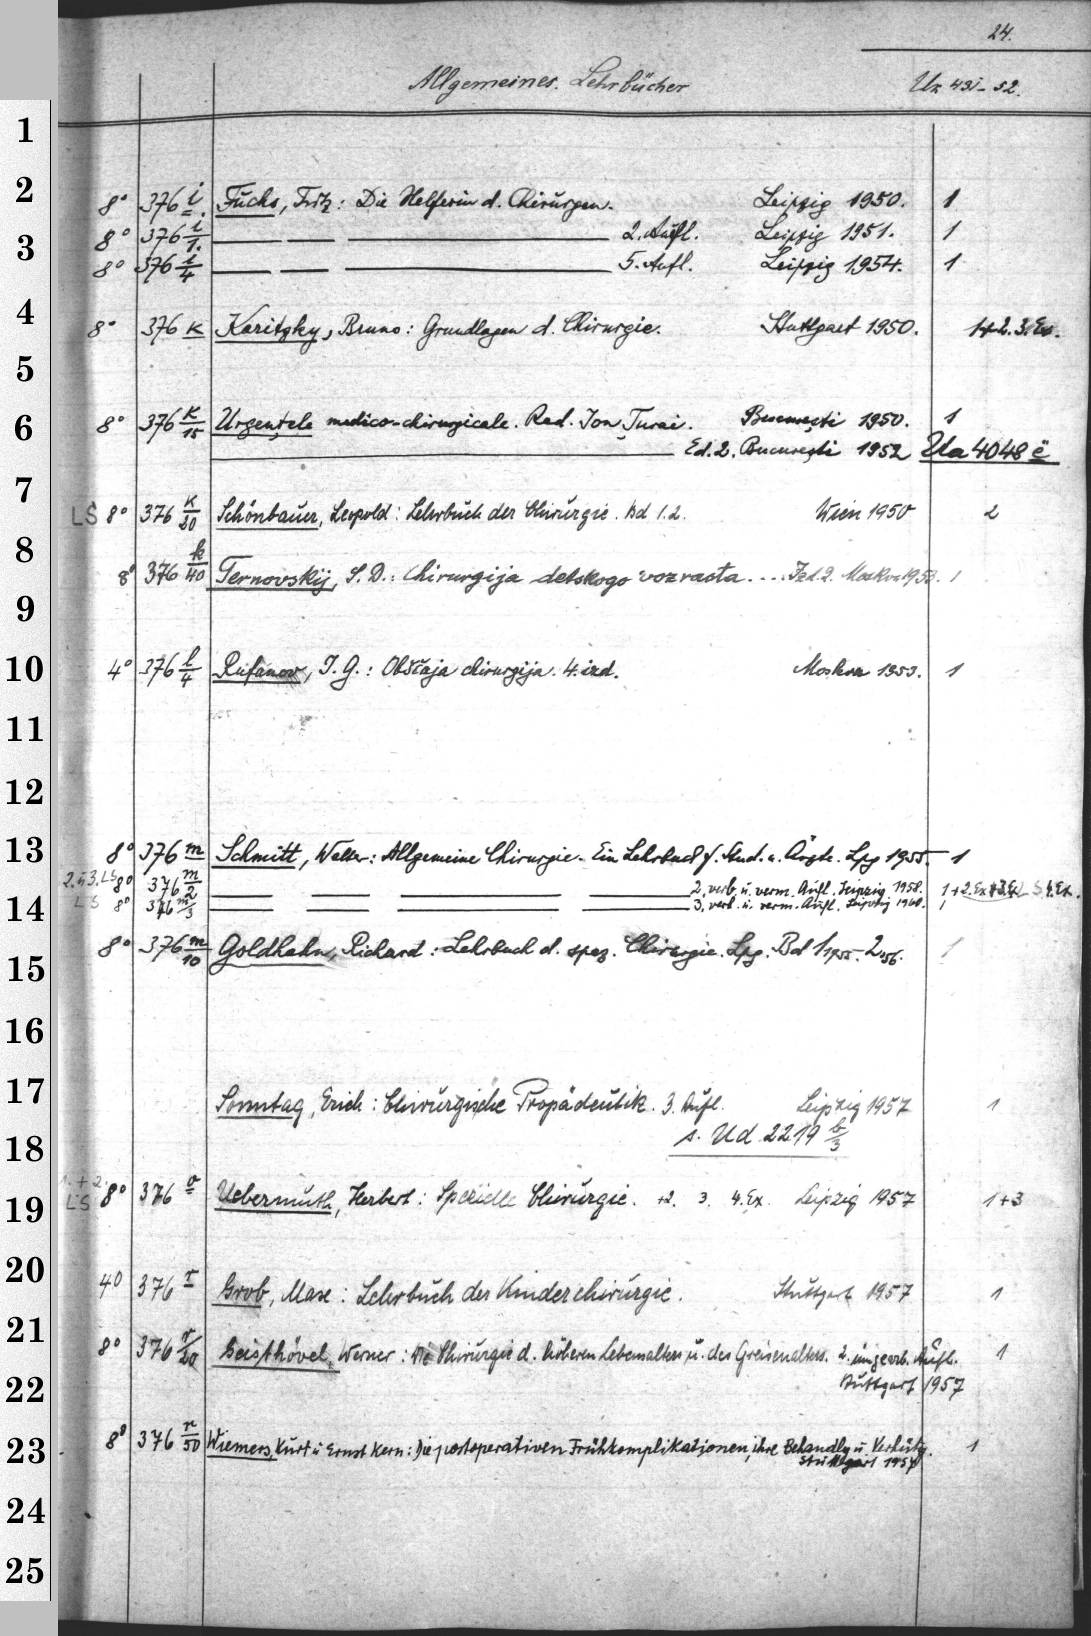 24.
Allgemeines. Lehrbücher
1
2
8° 376 i Fuchs, Fritz: Die Helferin d. Chirurgen. Leipzig 1950. 1
8° 376 i/1. — — — 2. Aufl. Leipzig 1951. 1
3
8° 376 i/4 — — — 5. Aufl. Leipzig 1954. 1
4
8° 376 k Karitzky, Bruno: Grundlagen d. Chirurgie. Stuttgart 1950. 1+2. 3. Ex.
5
6
8° 376 k/15 Urgenţele medico-chirurgicale. Red. Ion Ţurai. Bucureşti 1950. 1
Ed. 2. Bucureşti 1952 Ua 4048 ë
7
LS 8° 376 k/20 Schönbauer, Leopold: Lehrbuch der Chirurgie. Bd 1.2. Wien 1950 2
8
8° 376 k/40 Ternovskij, S. D.: Chirurgija detskogo vozrasta.... Izd. 2. Moskva 1953. 1
9
10
4° 376 l/4 Rufanov, I. G.: Obščaja chirurgija. 4. izd. Moskva 1953. 1
11
12
13
8° 376 m Schmitt, Walter: Allgemeine Chirurgie. Ein Lehrbuch f. Stud. u. Ärzte. Lpg 1955. 1
8° 376 m/2 — — — — 2. verb. u. verm. Aufl. Leipzig 1958.
14
LS 8° 376 m/3 — — — — 3. verb. u. verm. Aufl. Leipzig 1960. 1
8° 376 m/10 Goldhahn, Richard: Lehrbuch d. spez. Chirurgie. Lpg. Bd 1 1955. 2 56. 1
15
16
17
Sonntag, Erich: Chirurgische Propädeutik. 3. Aufl. Leipzig 1957 1
s. Ud 2219 b/3
18
1. + 2.
LS 8° 376 o Uebermuth, Herbert: Spezielle Chirurgie. +2. 3. 4. Ex. Leipzig 1957 1+3
19
20
4° 376 r Grob, Max: Lehrbuch der Kinderchirurgie. Stuttgart 1957 1
21
8° 376 r/20 Geisthövel, Werner: Die Chirurgie d. höheren Lebensalters u. des Greisenalters. 2. umgearb. Aufl. 1
Stuttgart 1957
22
8° 376 r/50 Wiemers, Kurt u. Ernst Kern: Die postoperativen Frühkomplikationen, ihre Behandlg u. Verhütg. 1
Stuttgart 1957
23
24
25